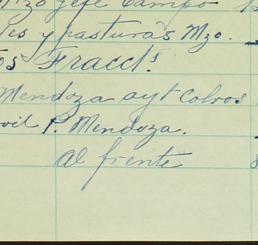 Mzo Jefe Campo
es y pasturas Mzo.
os Fracc.s
Mendoza ayt Colros
ovil P. Mendoza.
Al frente